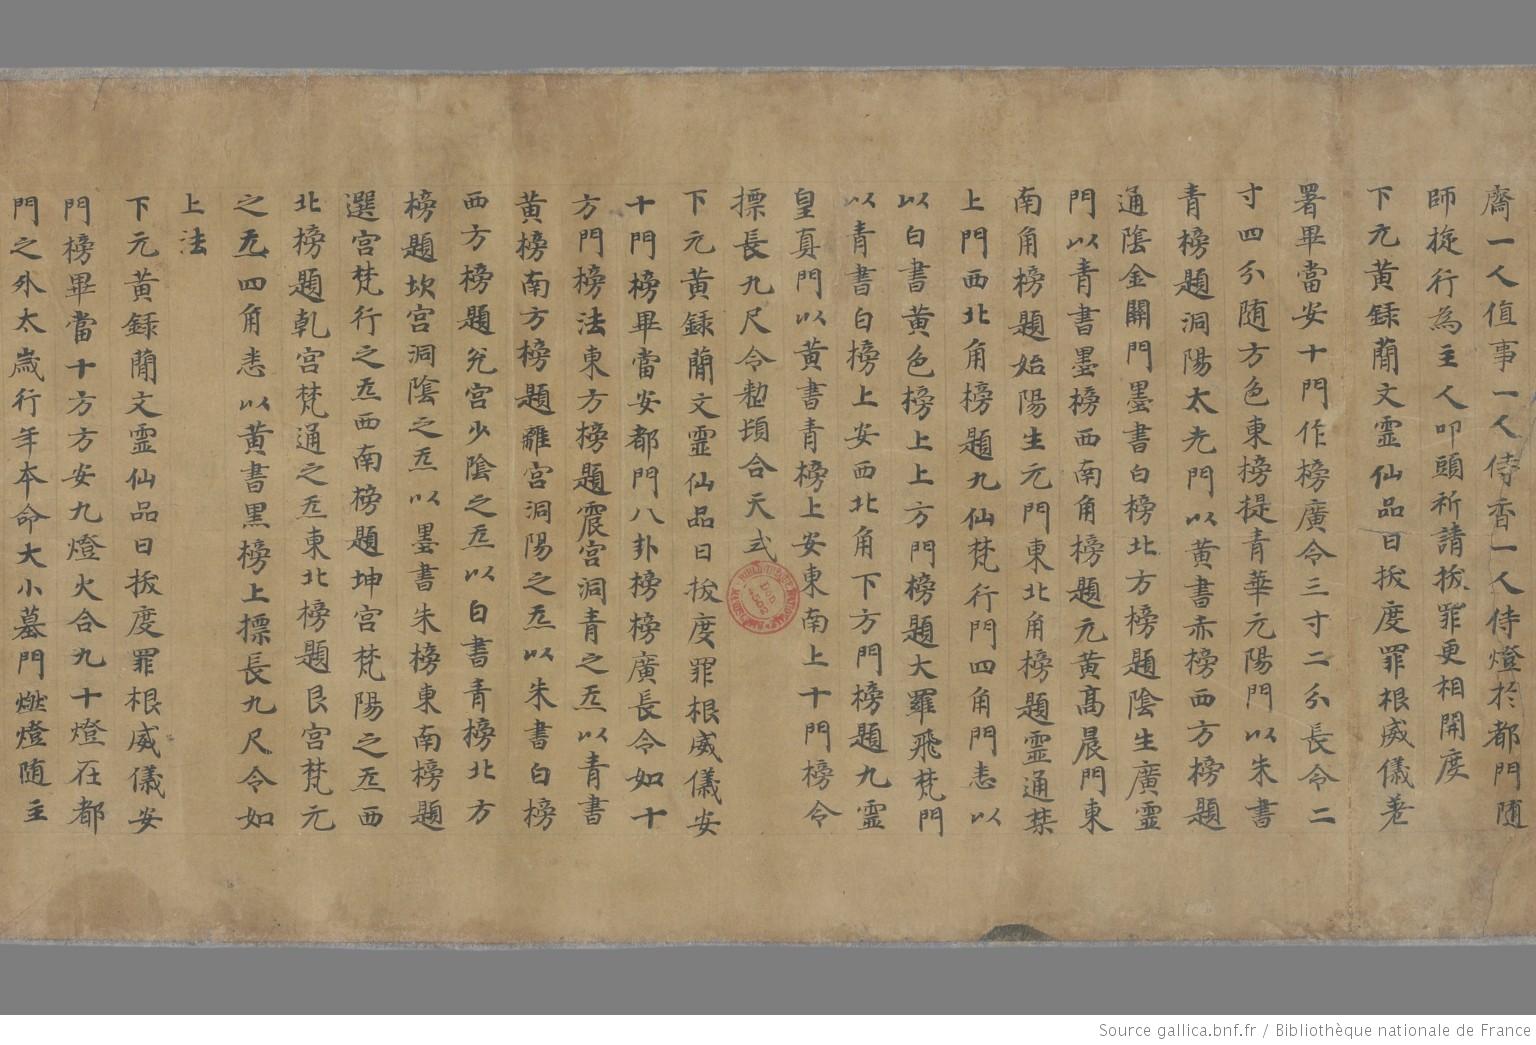 齋一人值事一人侍香一人侍燈於都門随
師旋行為主人叩頭祈請拔罪更相開度
下元黄録蕳文霊仙品曰拔度罪根威儀
署畢當安十門作榜廣令三寸二分長令二
寸四分随方色東榜提青華元陽門以朱書
青榜題洞陽太光門以黄書赤榜西方榜題
通隂金闕門墨書白榜北方榜題隂生廣靈
門以青書墨榜西南角榜題元黄髙晨門東
南角榜題始陽生元門東北角榜題霊通
上門西北角榜題九仙梵行門四角門悉以
以白書黄色榜上上方門榜題大羅飛梵門
以青書白榜上安西北角下方門榜題九霊
皇真門以黄書青榜上安東南上十門榜令
摽長九尺令整頓合天式
下元黄録蕳文霊仙品曰拔度罪根威儀安
十門榜畢當安都門八卦榜榜廣長令如十
方門榜法東方榜題震宫洞青之炁以青書
黄榜南方榜題離宫洞陽之炁以朱書白榜
西方榜題兊宫少隂之炁以白書青榜北方
榜題坎宫洞隂之炁以墨書朱榜東南榜題
選宫梵行之炁西南榜題坤宫梵陽之炁西
北榜題乹宫梵通之炁東北榜題艮宫梵元
之炁四角悉以黄書黒榜上摽長九尺令如
上法
下元黄録蕳文霊仙品曰拔度罪根威儀安
門榜畢當十方方安九燈火合九十燈在都
門之外太歳行年本命大小墓門燃燈随主
Source gallica.bnf.fr / Bibliothèque nationale de France